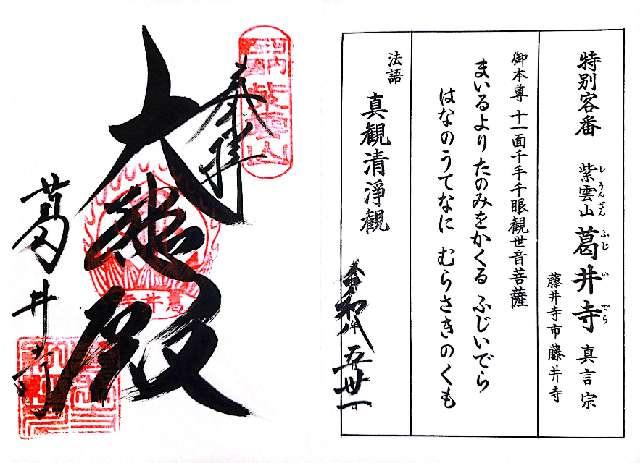 特別客番 紫雲山 葛井寺 真言宗
しうんざん ふじいでら
藤井寺市藤井寺
御本尊 十一面千手千眼観世音菩薩
まいるより たのみをかくる ふじいでら
はなのうてなに むらさきのくも
法語
真観清淨観
奉拝
大悲殿
葛井寺